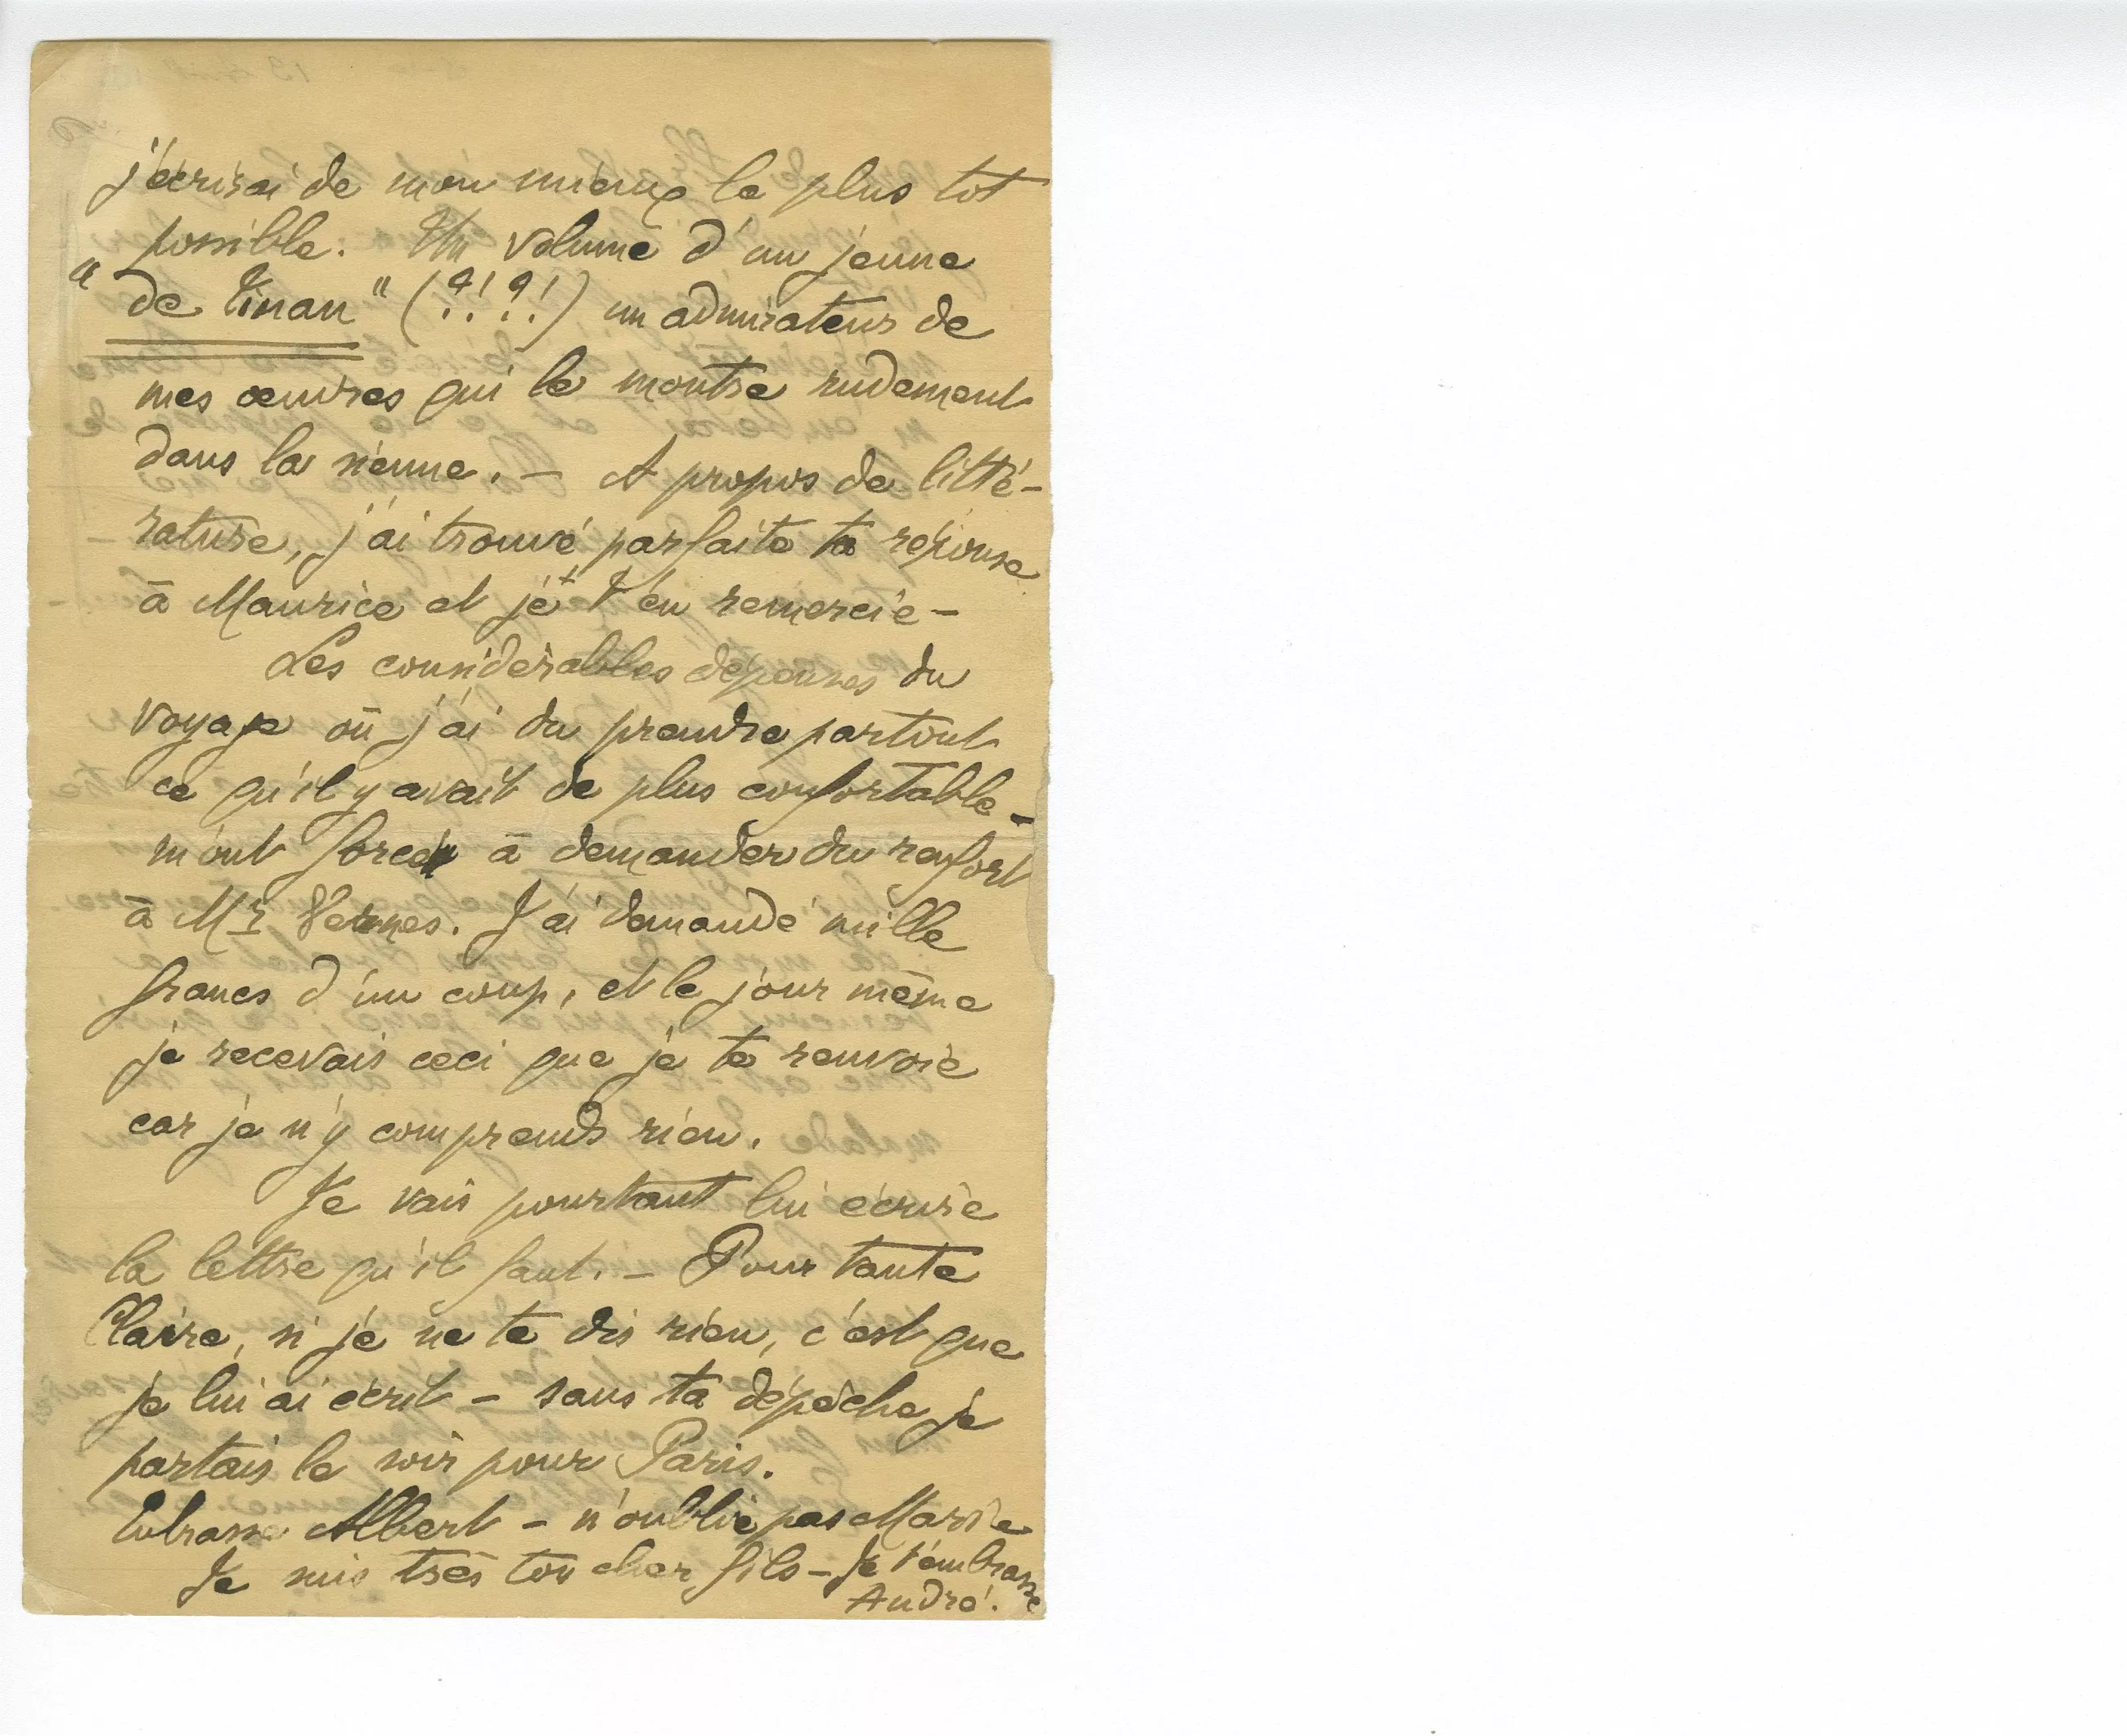 j'écrirai de mon mieux le plus tot
possible. Un volume d'un jeune
"de Tinan" (?!?!) un admirateur de
mes œuvres qui le montre rudement
dans la sienne. – A propos de litté-
rature, j'ai trouvé parfaite ta réponse
à Maurice et je t'en remercie –
Les considérables dépenses du
voyage où j'ai du prendre partout
ce qu'il y avait de plus confortable –
m'ont forcé à demander du renfort
à Mr Vernes. J'ai demandé mille
francs d'un coup, et le jour même
je recevais ceci que je te renvoie
car je n'y comprends rien.
Je vais pourtant lui écrire
la lettre qu'il faut. – Pour tante
Claire, si je ne te dis rien, c'est que
je lui ai écrit – sans ta dépêche je
partais le soir pour Paris.
Embrasse Albert – n'oublie pas Marie
Je suis très ton cher fils – Je t'embrasse
André.